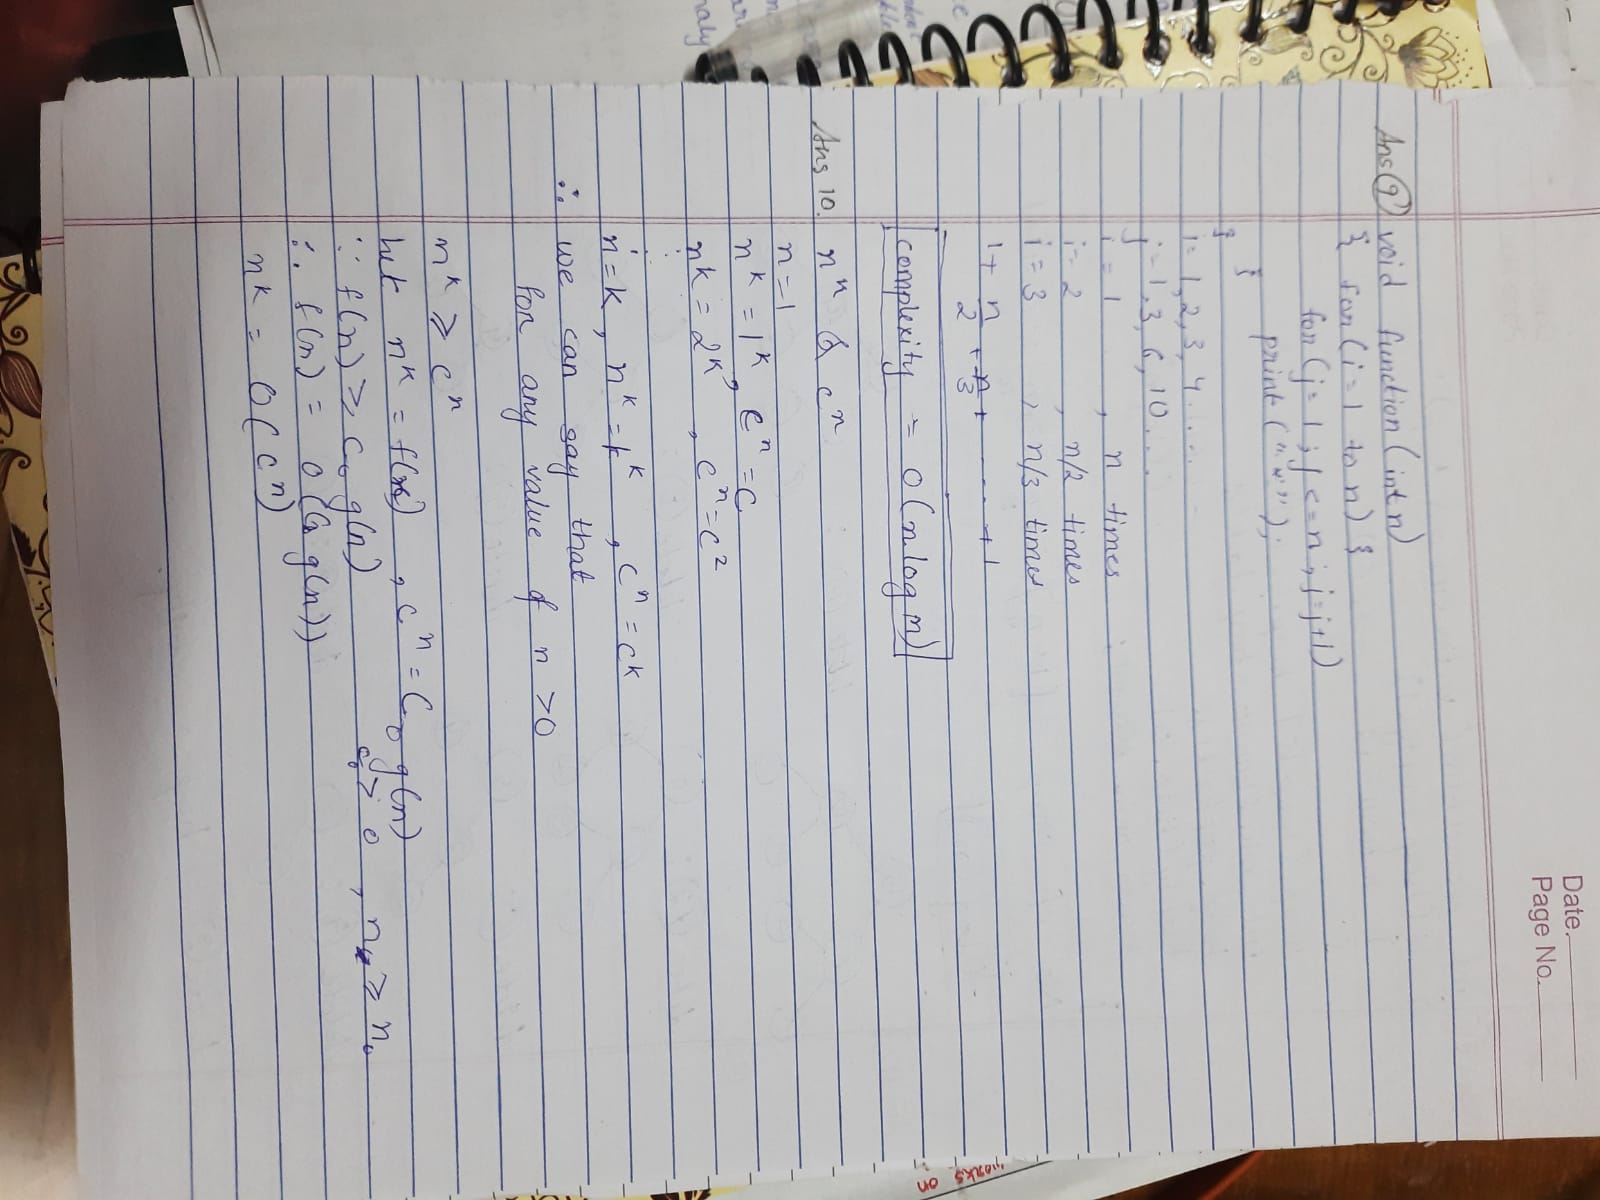 Date.
Page No.
Ans 9 void function (int n)
{ for (i=1 to n) {
for (j=1; j<=n; j=j+1)
print("*");
}
}
i= 1, 2, 3, 4 .....
j= 1, 3, 6, 10....
i= 1 , n times
i= 2 , n/2 times
i= 3 , n/3 times
1+ n/2 + n/3 + ..... +1
complexity = O(n log n)
Ans 10. nⁿ & cⁿ
n=1
nᵏ = 1ᵏ, cⁿ = C
nᵏ = 2ᵏ , cⁿ = c²
n=k, nᵏ = kᵏ , cⁿ = cᵏ
∴ we can say that
for any value of n >0
nᵏ ≥ cⁿ
let nᵏ = f(n) , cⁿ = C₀ g(n)
∵ f(n) ≥ C₀ g(n) c₀ ≥ 0 , n ≥ n₀
∴ f(n) = O(C₀ g(n))
nᵏ = O(cⁿ)
works on